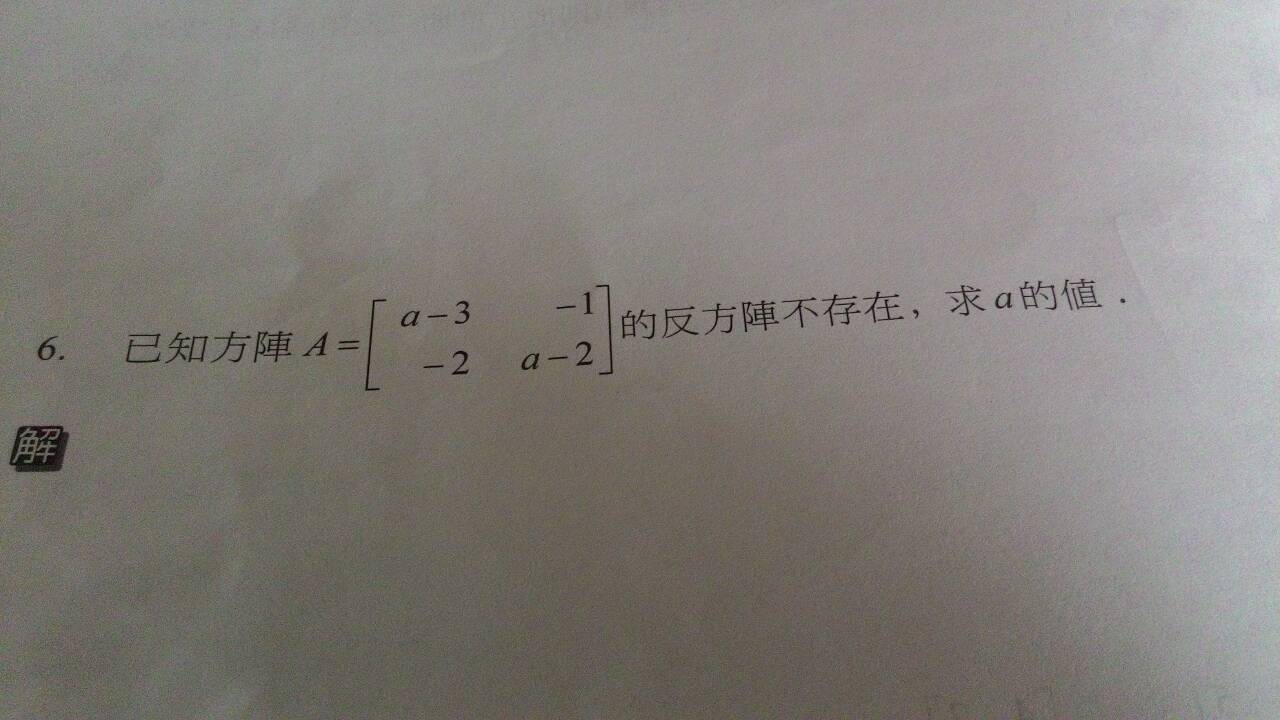 6. 已知方陣 A=[a-3 -1
-2 a-2]的反方陣不存在，求 a 的值．
解